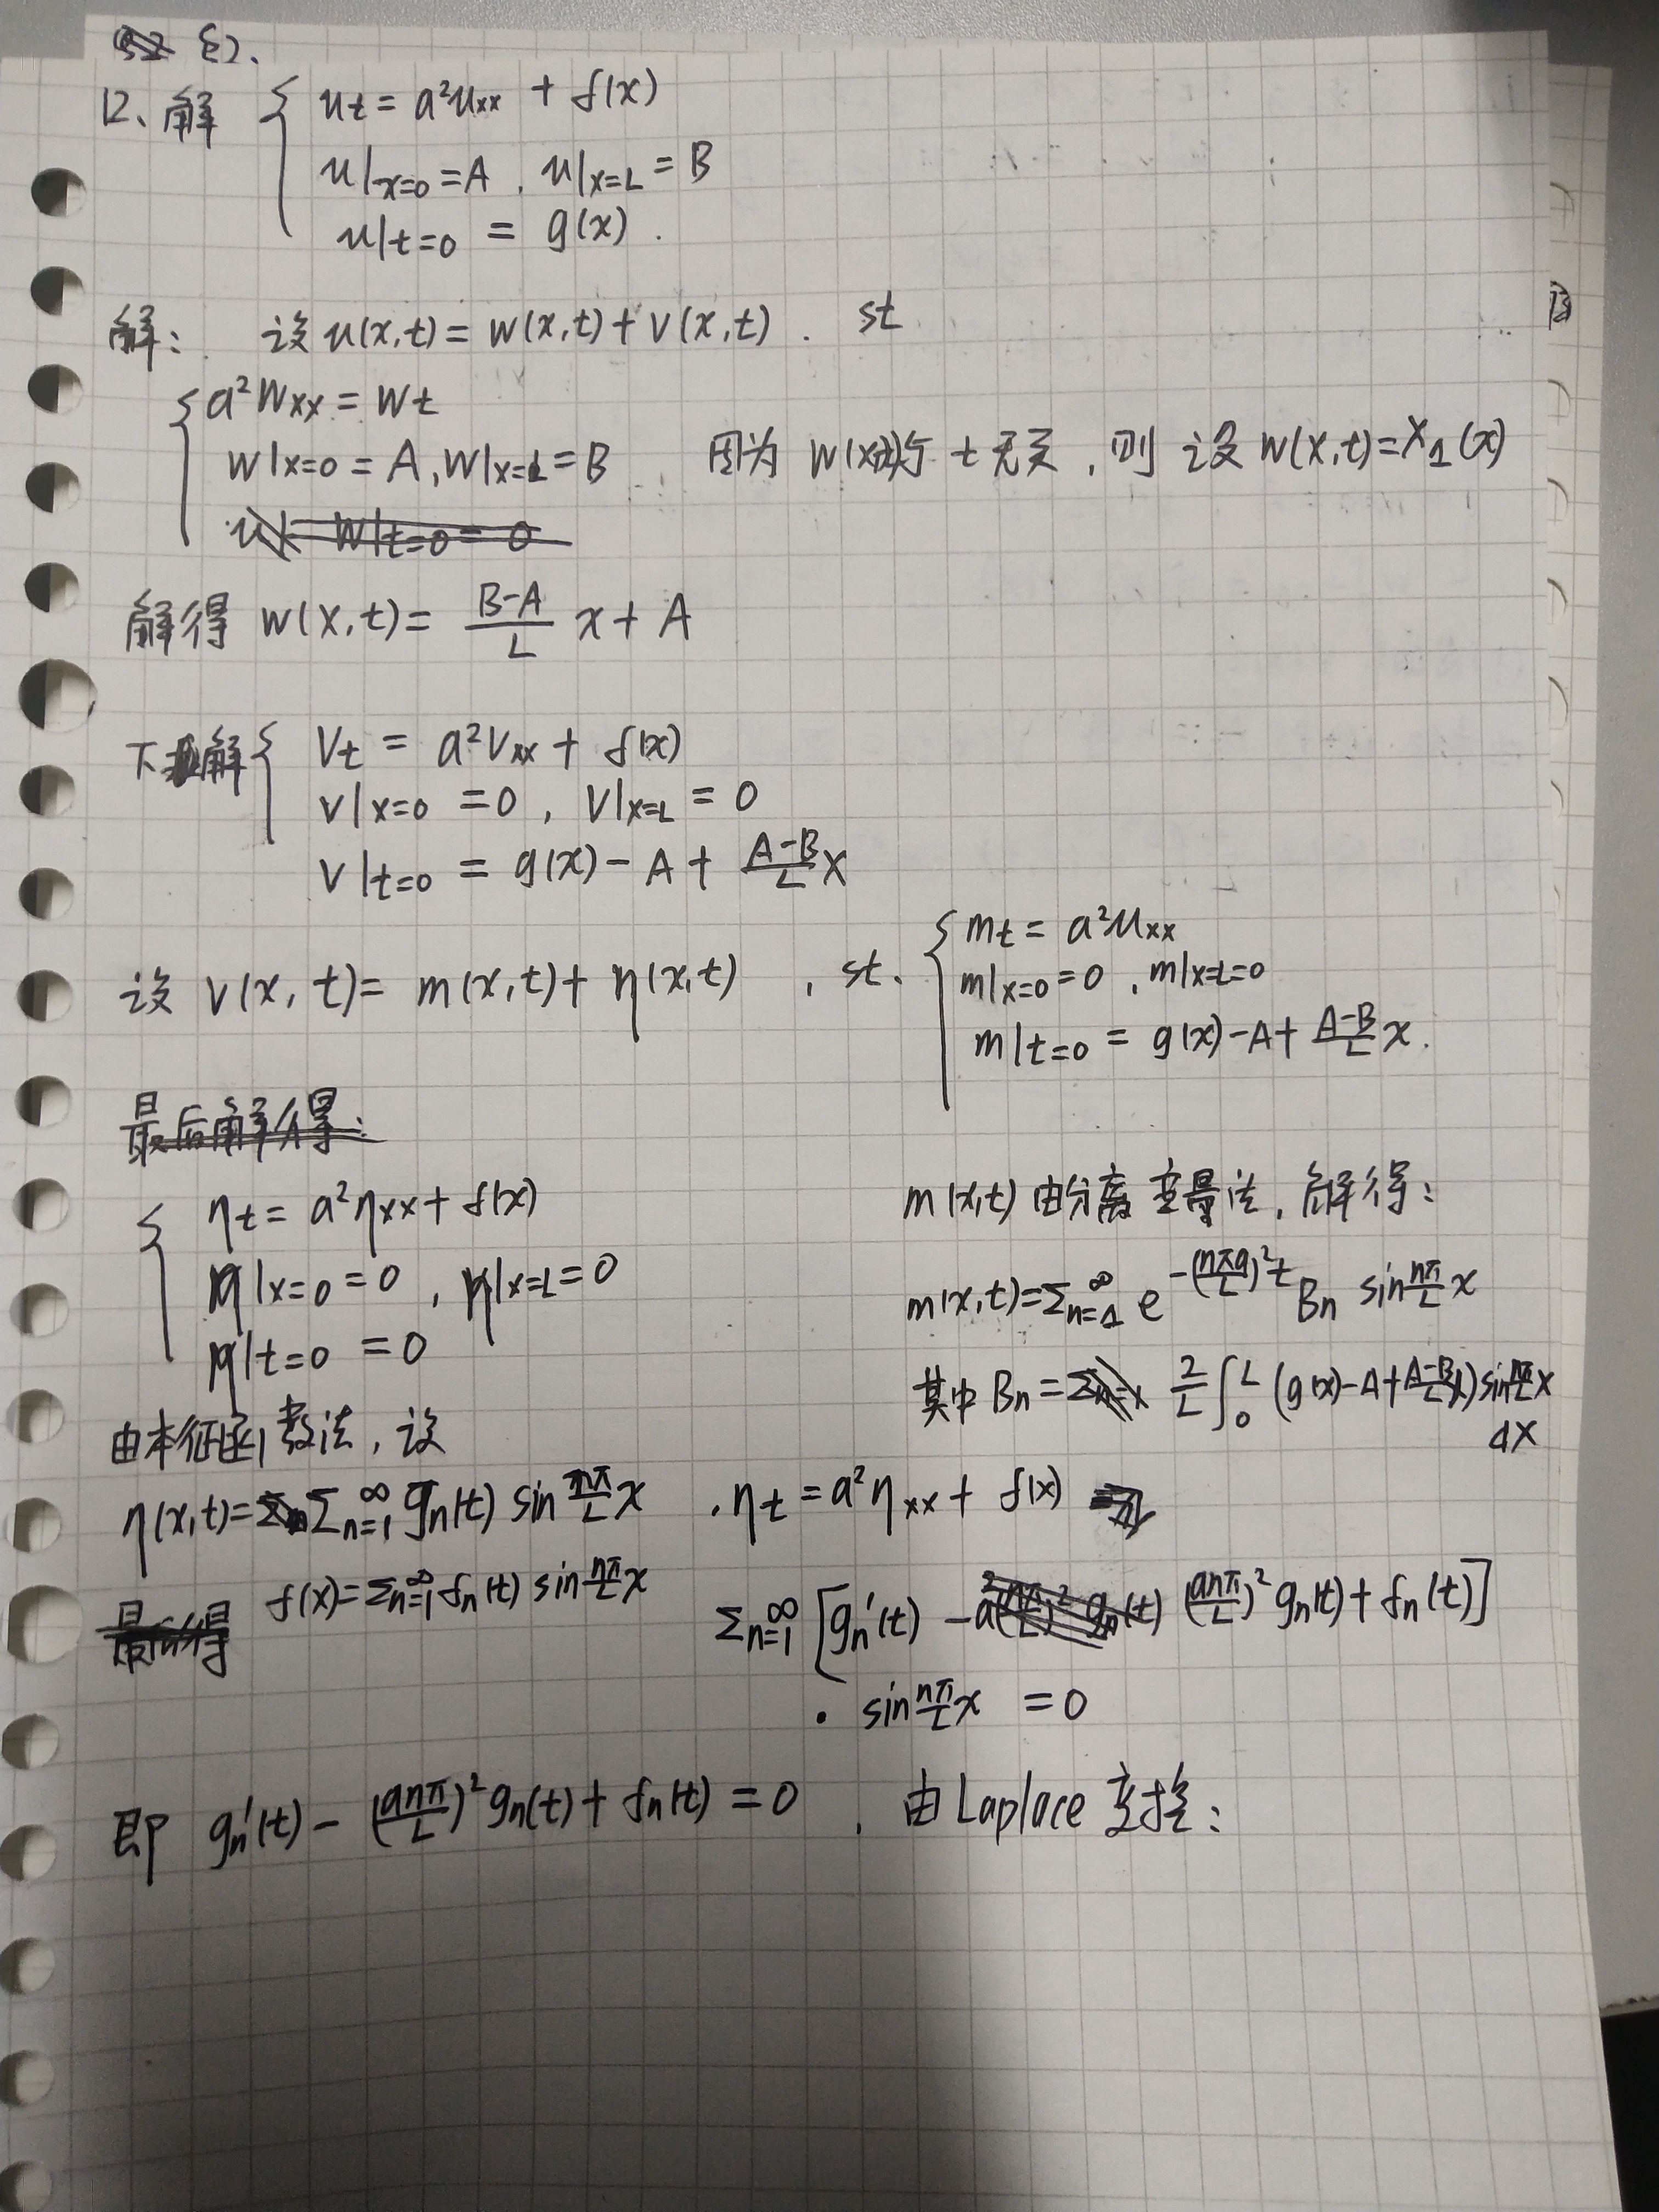 12、解 { ut = a²uxx + f(x)
u|x=0 = A , u|x=L = B
u|t=0 = g(x) .
解: 设 u(x,t) = w(x,t) + v(x,t) . st
{ a²wxx = wt
w|x=0 = A, w|x=L = B 因为 w(x,t)与 t 无关 , 则 设 w(x,t)=X1(x)
解得 w(x,t) = (B-A)/L x + A
下解 { Vt = a²Vxx + f(x)
V|x=0 = 0 , V|x=L = 0
V|t=0 = g(x) - A + (A-B)/L x
设 v(x,t) = m(x,t) + η(x,t) , st. { mt = a²uxx
m|x=0 = 0 , m|x=L=0
m|t=0 = g(x) - A + (A-B)/L x .
最后解得:
{ ηt = a²ηxx + f(x)
η|x=0 = 0 , η|x=L = 0
η|t=0 = 0
m(x,t) 由分离变量法, 解得:
m(x,t) = Σn=1^∞ e^-(nπa/L)²t Bn sin nπ/L x
其中 Bn = 2/L ∫0^L (g(x) - A + (A-B)/L x) sin nπ/L x
dx
由本征函数法, 设
η(x,t) = Σn=1^∞ gn(t) sin nπ/L x , ηt = a²ηxx + f(x)
f(x) = Σn=1^∞ fn(t) sin nπ/L x
Σn=1^∞ [gn'(t) - (anπ/L)² gn(t) + fn(t)]
· sin nπ/L x = 0
即 gn'(t) - (anπ/L)² gn(t) + fn(t) = 0 , 由 Laplace 变换: